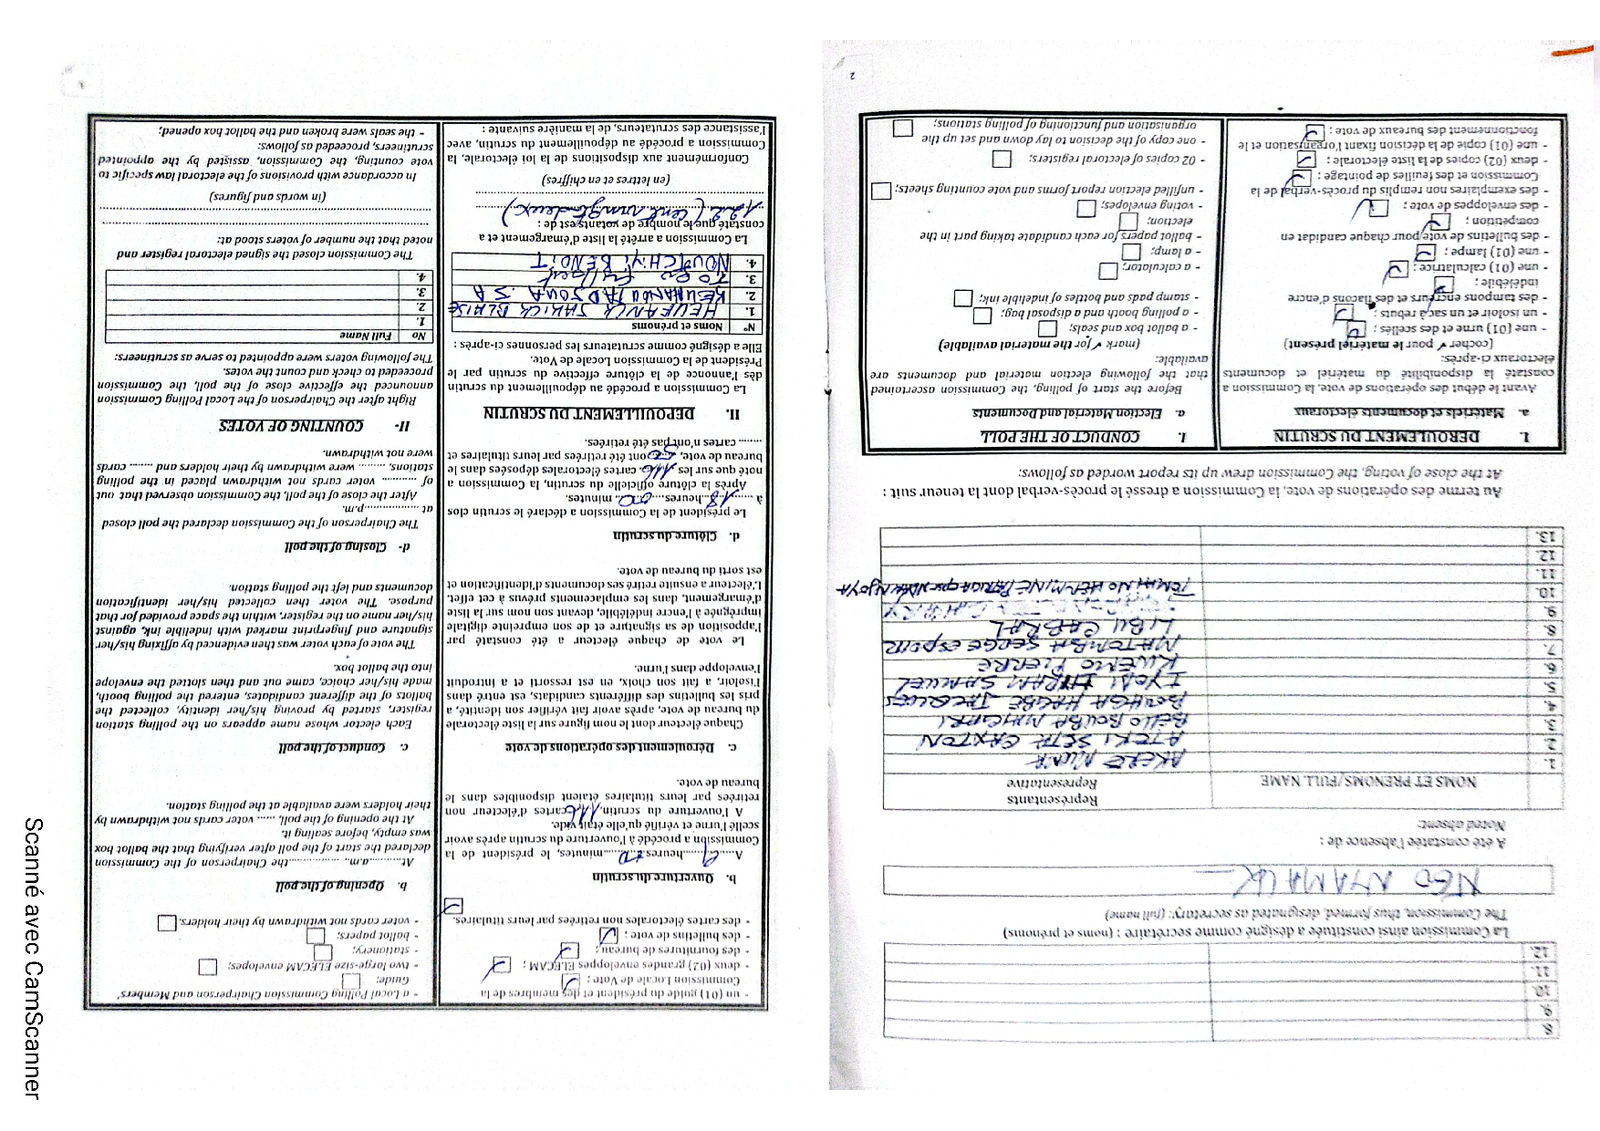 8.
9.
10.
11.
12.
La Commission ainsi constituée a désigné comme secrétaire : (noms et prénoms)
The Commission, thus formed, designated as secretary: (full name)
NGO NYAMACK
A été constatée l'absence de :
Noted absent:
NOMS ET PRENOMS/FULL NAME
Représentants
Representative
1.
2. ATEKI SETA CAXTON
3. BELLO BOUBA MAIGARI
4. BOUGHA HAGBE JACQUES
5. IYODI HIRAM SAMUEL
6. KWEMO PIERRE
7. MATOMBA SERGE ESPOIR
8. LIBII CABRAL
9.
10. TOMAINO HERMINE PATRICIA epse NDAM NJOYA
11.
12
13.
Au terme des opérations de vote, la Commission a dressé le procès-verbal dont la teneur suit :
At the close of voting, the Commission drew up its report worded as follows:
I. DEROULEMENT DU SCRUTIN
a. Matériels et documents électoraux
Avant le début des opérations de vote, la Commission a
constaté la disponibilité du matériel et documents
électoraux ci-après:
(cocher ✓ pour le matériel présent)
- une (01) urne et des scellés ;
- un isoloir et un sac à rebut ;
- des tampons encreurs et des flacons d'encre
indélébile ;
- une (01) calculatrice ;
- une (01) lampe ;
- des bulletins de vote pour chaque candidat en
compétition ;
- des enveloppes de vote ;
- des exemplaires non remplis du procès-verbal de la
Commission et des feuilles de pointage ;
- deux (02) copies de la liste électorale ;
- une (01) copie de la décision fixant l'organisation et le
fonctionnement des bureaux de vote ;
I. CONDUCT OF THE POLL
a. Election Material and Documents
Before the start of polling, the Commission ascertained
that the following election material and documents are
available:
(mark ✓ for the material available)
- a ballot box and seals;
- a polling booth and a disposal bag;
- stamp pads and bottles of indelible ink;
- a calculator;
- a lamp;
- ballot papers for each candidate taking part in the
election;
- voting envelopes;
- unfilled election report forms and vote counting sheets;
- 02 copies of electoral registers;
- one copy of the decision to lay down and set up the
organisation and functioning of polling stations;
2
- un (01) guide du président et des membres de la
Commission Locale de Vote ;
- deux (02) grandes enveloppes ELECAM ;
- des fournitures de bureau ;
- des bulletins de vote ;
- des cartes électorales non retirées par leurs titulaires.
b. Ouverture du scrutin
A 9 heures 00 minutes, le président de la
Commission a procédé à l'ouverture du scrutin après avoir
scellé l'urne et vérifié qu'elle était vide.
A l'ouverture du scrutin, 116 cartes d'électeur non
retirées par leurs titulaires étaient disponibles dans le
bureau de vote.
c. Déroulement des opérations de vote
Chaque électeur dont le nom figure sur la liste électorale
du bureau de vote, après avoir fait vérifier son identité, a
pris les bulletins des différents candidats, est entré dans
l'isoloir, a fait son choix, en est ressorti et a introduit
l'enveloppe dans l'urne.
Le vote de chaque électeur a été constaté par
l'apposition de sa signature et de son empreinte digitale
imprégnée à l'encre indélébile, devant son nom sur la liste
d'émargement, dans les emplacements prévus à cet effet.
L'électeur a ensuite retiré ses documents d'identification et
est sorti du bureau de vote.
d. Clôture du scrutin
Le président de la Commission a déclaré le scrutin clos
à 18 heures 00 minutes.
Après la clôture officielle du scrutin, la Commission a
noté que sur les 116 cartes électorales déposées dans le
bureau de vote, 50 ont été retirées par leurs titulaires et
........ cartes n'ont pas été retirées.
II. DEPOUILLEMENT DU SCRUTIN
La Commission a procédé au dépouillement du scrutin
dès l'annonce de la clôture effective du scrutin par le
Président de la Commission Locale de Vote.
Elle a désigné comme scrutateurs les personnes ci-après :
N° Noms et prénoms
1. HEUFANCK YANICK BLAISE
2.
3.
4. NOUTCHYI BENOIT
La Commission a arrêté la liste d'émargement et a
constaté que le nombre de votants est de :
122 (cent vingt-deux)
(en lettres et en chiffres)
Conformément aux dispositions de la loi électorale, la
Commission a procédé au dépouillement du scrutin, avec
l'assistance des scrutateurs, de la manière suivante :
- a Local Polling Commission Chairperson and Members'
Guide;
- two large-size ELECAM envelopes;
- stationery;
- ballot papers;
- voter cards not withdrawn by their holders.
b. Opening of the poll
At..........a.m., ..............the Chairperson of the Commission
declared the start of the poll after verifying that the ballot box
was empty, before sealing it.
At the opening of the poll, ...... voter cards not withdrawn by
their holders were available at the polling station.
c. Conduct of the poll
Each elector whose name appears on the polling station
register, started by proving his/her identity, collected the
ballots of the different candidates, entered the polling booth,
made his/her choice, came out and then slotted the envelope
into the ballot box.
The vote of each voter was then evidenced by affixing his/her
signature and fingerprint marked with indelible ink, against
his/her name on the register, within the space provided for that
purpose. The voter then collected his/her identification
documents and left the polling station.
d- Closing of the poll
The Chairperson of the Commission declared the poll closed
at ..................p.m.
After the close of the poll, the Commission observed that out
of .......... voter cards not withdrawn placed in the polling
stations, ........ were withdrawn by their holders and ....... cards
were not withdrawn.
II- COUNTING OF VOTES
Right after the Chairperson of the Local Polling Commission
announced the effective close of the poll, the Commission
proceeded to check and count the votes.
The following voters were appointed to serve as scrutineers:
No Full Name
1.
2.
3.
4.
The Commission closed the signed electoral register and
noted that the number of voters stood at:
(in words and figures)
In accordance with provisions of the electoral law specific to
vote counting, the Commission, assisted by the appointed
scrutineers, proceeded as follows:
- the seals were broken and the ballot box opened;
Scanné avec CamScanner